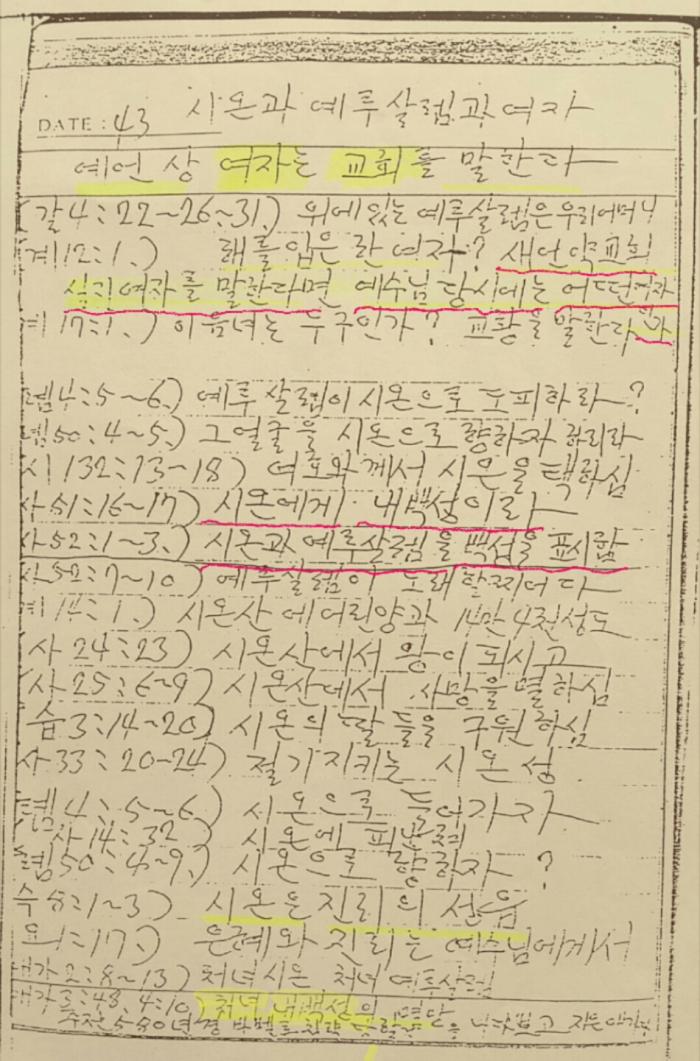 시온과 예루살렘과 여자
DATE : 43
예언 상 여자는 교회를 말한다
갈4:22~26~31.) 위에있는 예루살렘은 우리어머니
계12:1.) 해를입은 한 여자? 새언약교회
여자를 말한다면 예수님 당시에는 어떤여자
17:1.) 이 음녀는 누구인가? 교황을 말한다
렘4:5~6.) 예루살렘이 시온으로 도피하라?
렘50:4~5.) 그얼굴을 시온으로 향하자
시132:13~18) 여호와께서 시온을 택하심
사51:16~17) 시온에게 내백성이라
사52:1~3.) 시온과 예루살렘을 백성을 표시함
사52:7~10) 예루살렘이 노래할찌어다
계14:1.) 시온산에 어린양과 14만4천성도
사24:23) 시온산에서 왕이되시고
사25:6~9) 시온산에서 사망을멸하심
습3:14~20) 시온의 딸들을 구원하심
사33:20~24) 절기지키는 시온성
렘4:5~6) 시온으로 들어가자
사14:32) 시온에
렘50:4~9.) 시온으로 향하자?
슥8:1~3) 시온은 진리의 성읍
요1:17.) 은혜와 진리는 예수님에게서
애가2:8~13) 처녀시온 처녀 예루살렘
애가3:48, 4:10 처녀 내백성의
주전580년경